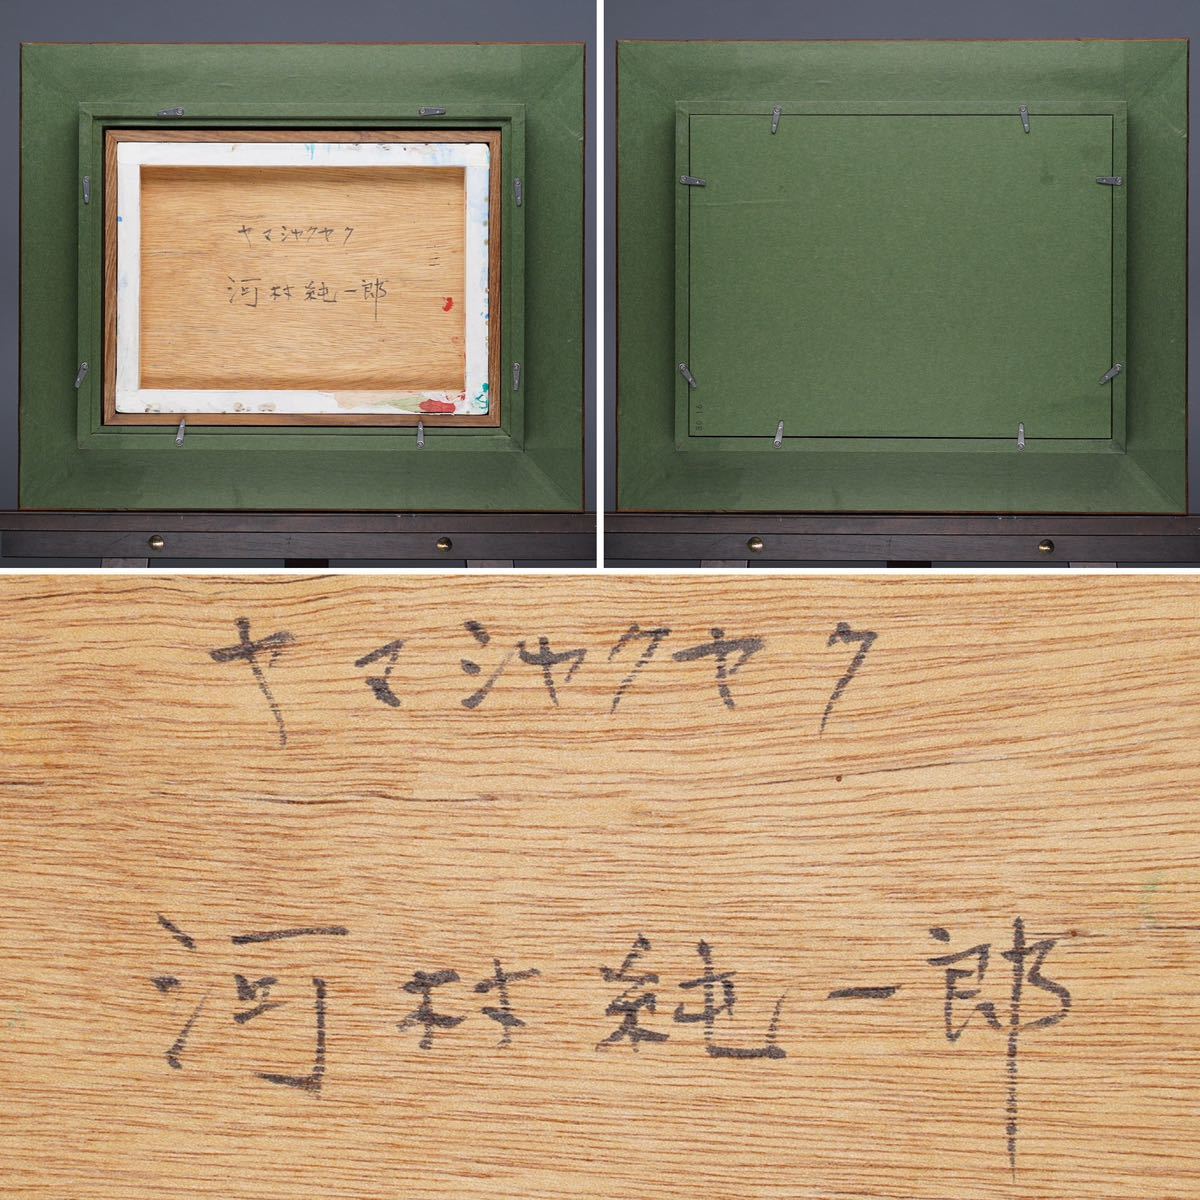 ヤマシャクヤク
河村純一郎
ヤマシャクヤク
河村純一郎